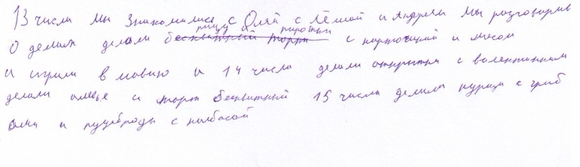 13 числа мы знакомились с Олей с Лёшой и Андреем мы разговорив
о делах делали пиццу и пирожки с картошкой и мясом
и играли в мафию и 14 числа делали открытки с валентинкам
делали оливье и торт бисквитный 15 числа делили курица с гриб
ами и бутерброды с колбасой